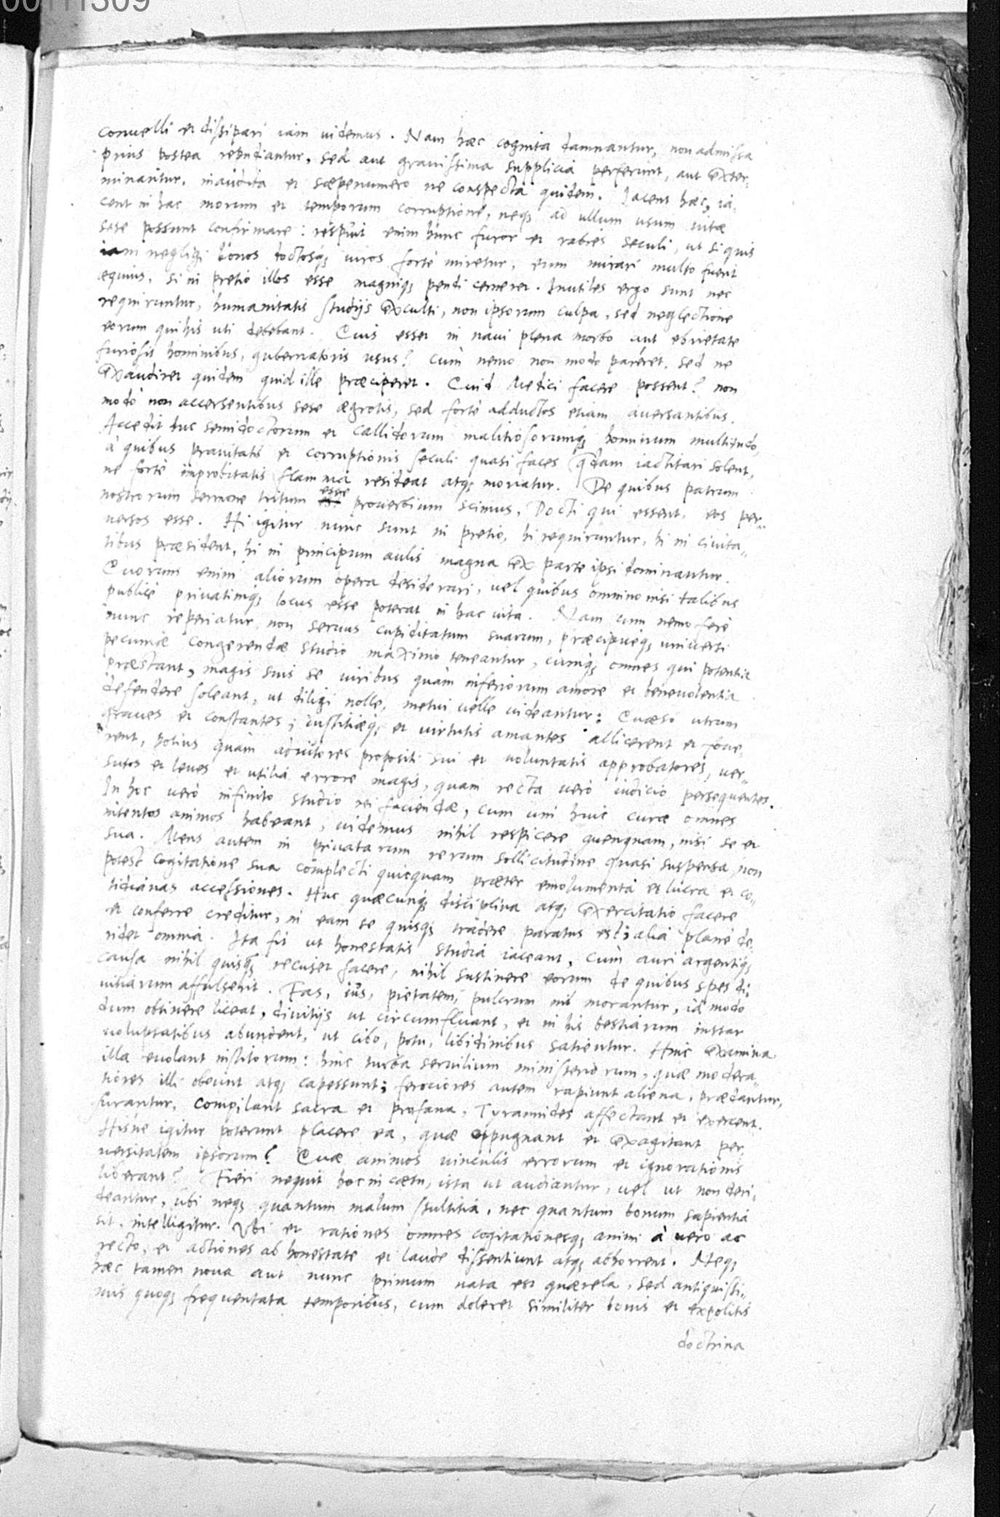 00111309
conuelli et dissipari iam uidemus. Nam haec cognita damnantur, non admissa
prius postea repudiantur, sed aut grauissima supplicia perferunt, aut exter-
minantur, inaudita et saepenumero ne conspecta quidem. Iacent haec, ia-
cent in hac morum et temporum corruptione, neq; ad ullum usum uitae
sese possunt confirmare: respuit enim hunc furor et rabies seculi, ut si quis
iam negligi bonos doctosq; uiros forte miretur, eum mirari multo fuerit
aequius, si in pretio illos esse magniq; pendi cerneret. Inutiles ergo sunt nec
requiruntur, humanitatis studijs exculti, non ipsorum culpa, sed neglectione
eorum qui his uti debebant. Quis esset in naui plena morbo aut ebrietate
furiosis hominibus, gubernatoris usus? cum nemo non modo pareret, sed ne
exaudiret quidem quid ille praeciperet. Quid Medici facere possent? non
modo non accersentibus sese aegrotis, sed forte adductos etiam auersantibus.
Accedit huc semidoctorum et callidorum malitiosorumq; hominum multitudo,
à quibus prauitatis et corruptionis seculi quasi faces quaedam iactitari solent,
ne forte improbitatis flamma resideat atq; moriatur. De quibus patrum
nostrorum sermone tritum esse prouerbium scimus, Docti qui essent, eos per-
uersos esse. Hi igitur nunc sunt in pretio, hi requiruntur, hi in ciuita-
tibus praesident, hi in principum aulis magna ex parte ipsi dominantur.
Quorum enim aliorum opera desiderari, uel quibus omnino nisi talibus
publicè priuatimq; locus esse poterat in hac uita. Nam cum nemo ferè
nunc reperiatur non seruus cupiditatum suarum, praecipueq; uniuersi
pecuniae congerendae studio maximo teneantur, cumq; omnes qui potentia
praestant, magis suis se uiribus quàm inferiorum amore et beneuolentia
defendere soleant, ut diligi nolle, metui uelle uideantur: Quaeso utrum
graues et constantes, iustitiaeq; et uirtutis amantes allicerent et foue
rent, potius quàm adiutores propositi sui et uoluntatis approbatores, uer-
sutos et leues et utilia errore magis, quam recta uero iudicio persequentes.
In hoc uerò infinito studio rei faciendae, cum uni huic curae omnes
intentos animos habeant, uidemus nihil respicere quenquam, nisi se et
sua. Mens autem in priuatarum rerum sollicitudine quasi suspensa, non
potest cogitatione sua complecti quicquam praeter emolumenta et lucra et co-
tidianas accessiones. Huc quaecunq; disciplina atq; exercitatio facere
et conferre creditur, in eam se quisq; tradere paratus est; alia planè de-
ridet omnia. Ita fit ut honestatis studia iaceant, cum auri argentiq;
causa nihil quisq; recuset facere, nihil sustinere eorum de quibus spes di-
uitiarum affulserit. Fas, ius, pietatem, pulcrum nil morantur, id modo
dum obtinere liceat, diuitijs ut circumfluant, et in his bestiarum instar
uoluptatibus abundent, ut cibo, potu, libidinibus satientur. Hinc examina
illa euolant institorum: hinc turba seruilium ministeriorum, quae modera-
tiores illi obeunt atq; capessunt; ferociores autem rapiunt aliena, praedantur,
furantur, compilant sacra et profana, Tyrannides affectant et exercent.
Hisne igitur poterunt placere ea, quae oppugnant et exagitant per-
uersitatem ipsorum? Quae animos uinculis errorum et ignorationis
liberant? Fieri nequit hoc in coetu, ista ut audiantur, uel ut non deri-
deantur, ubi neq; quantum malum stultitia, nec quantum bonum sapientia
sit, intelligitur. Vbi et rationes omnes cogitationesq; animi à uero ac
recto, et actiones ab honestate et laude dissentiunt atq; abhorrent. Neq;
haec tamen noua aut nunc primum nata est quaerela, sed antiquissi-
mis quoq; frequentata temporibus, cum doleret similiter bonis et expolitis
doctrina